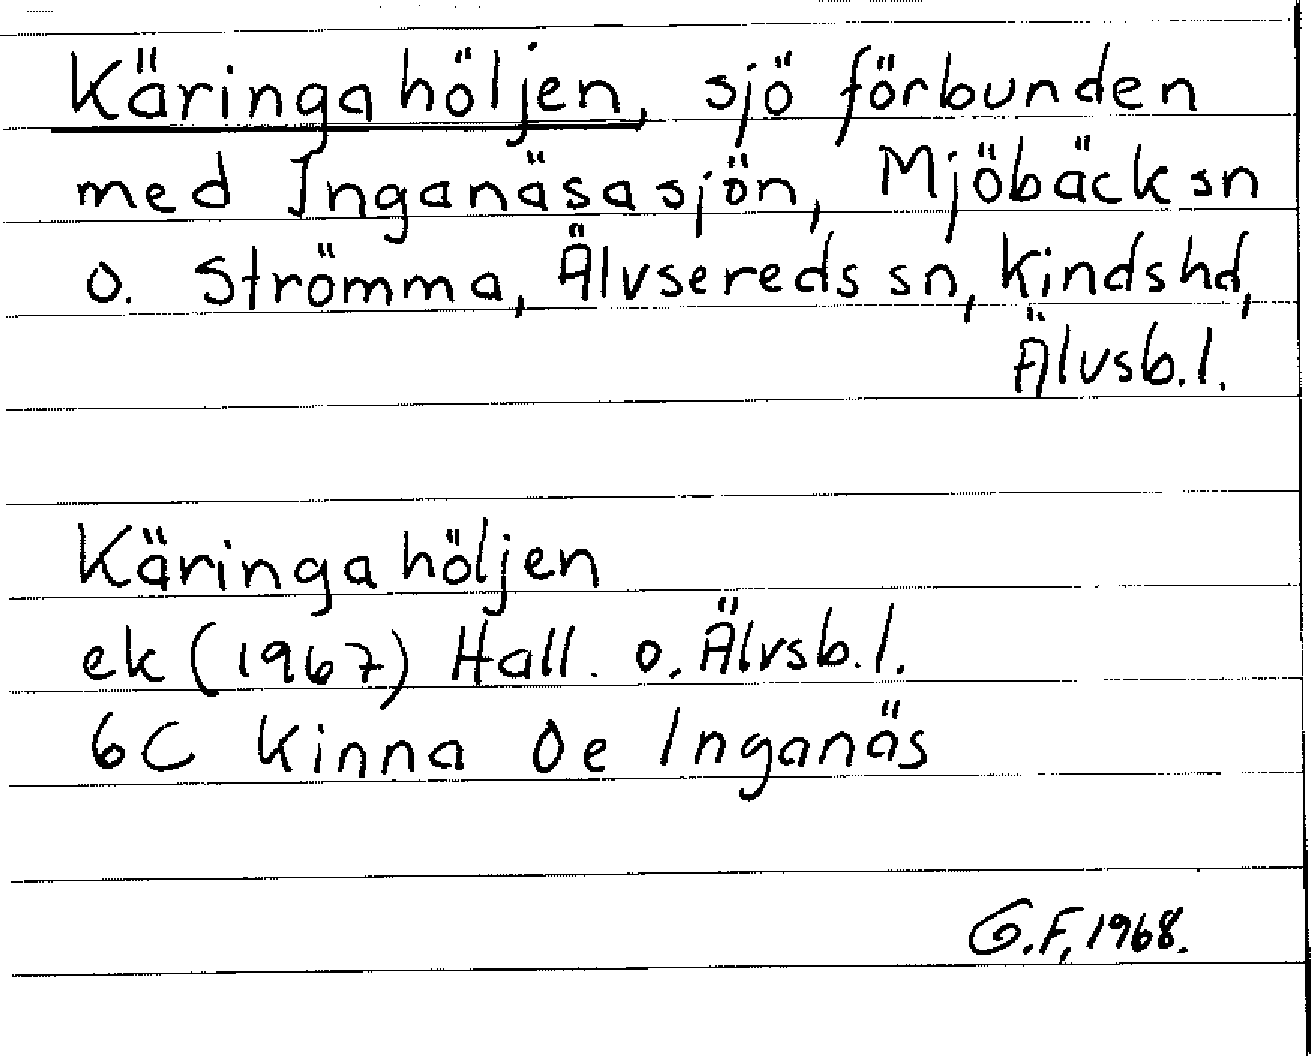 Käringahöljen, sjö förbunden
med Inganäsasjön, Mjöbäck sn
o. Strömma, Älvsereds sn, Kinds hd,
Älvsb. l.
Käringahöljen
ek (1967) Hall. o. Älvsb. l.
6C Kinna 0e Inganäs
G.F, 1968.